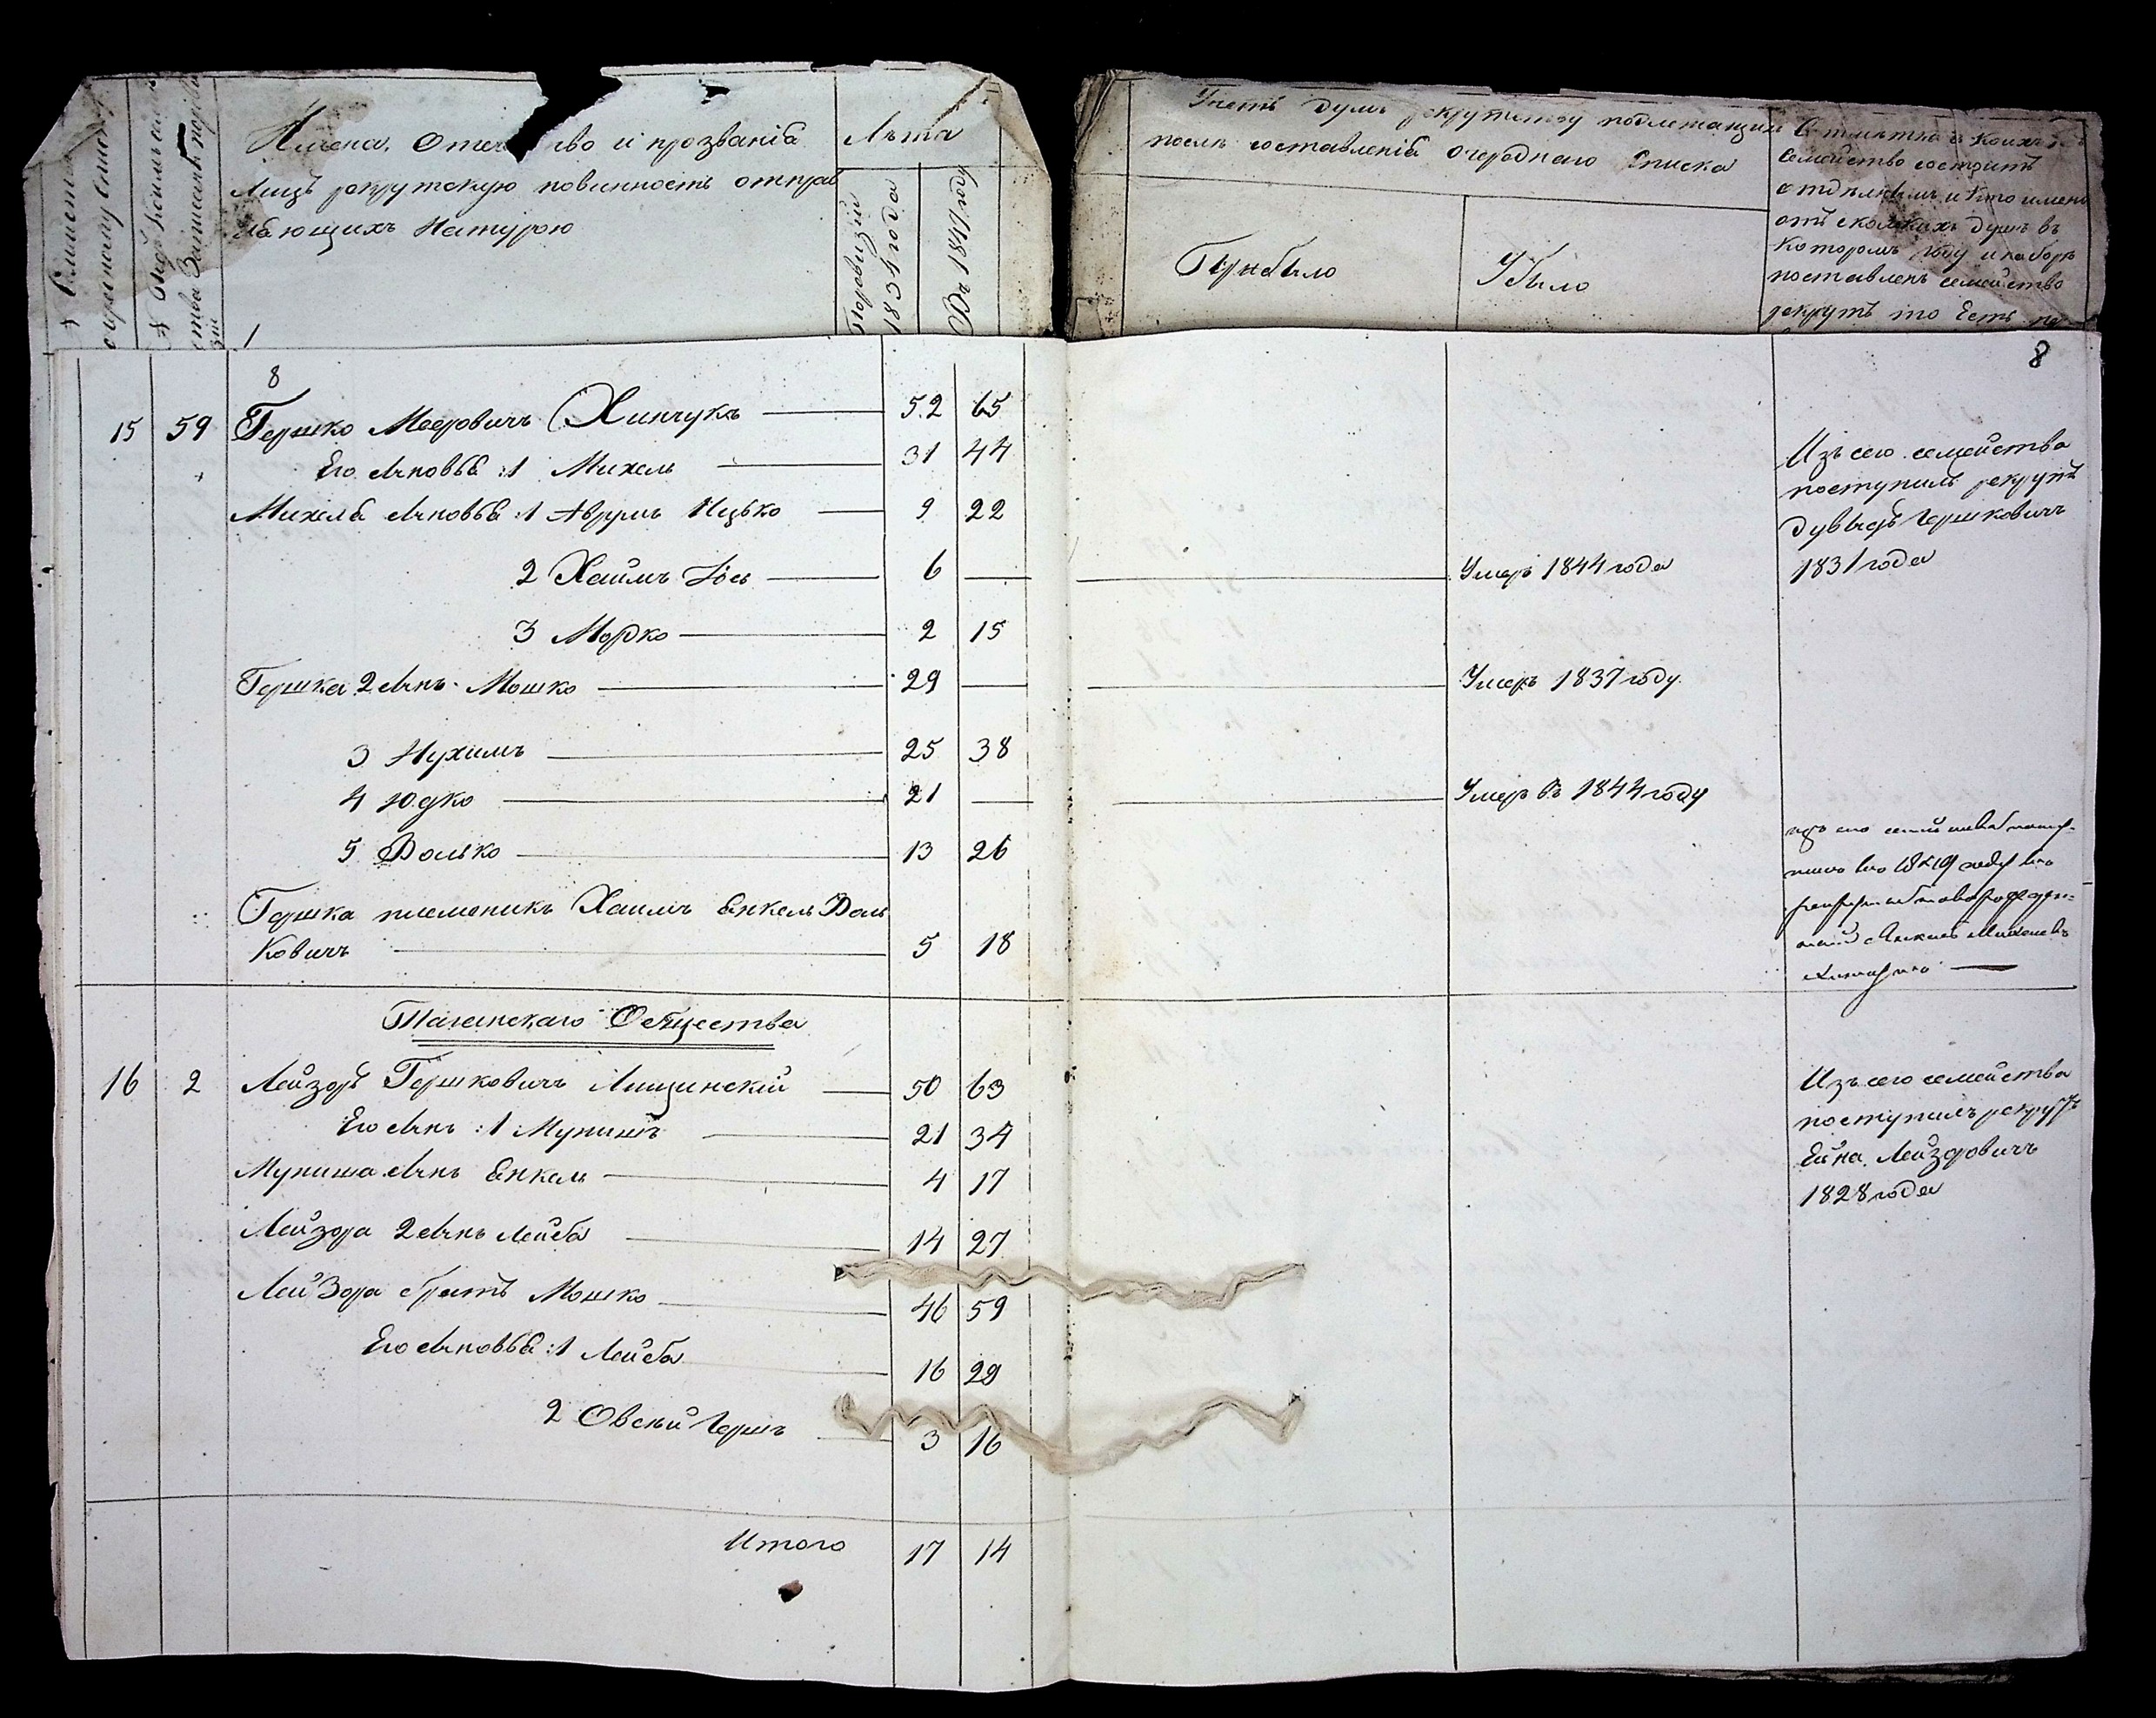 Имена, Отече ство и прозванія
Лицъ рекрутскую повинность отправ
ляющихъ Натурою
Лѣта
По ревизіи
1834 года
Въ 1847 году
1
Учетъ душъ рекрутству подлежащих
послѣ составленія Очереднаго Списка
Прибыло
Убыло
Отмѣтка о коихъ
семейство состоитъ
отдѣльнымъ и кто имено
отъ сколькихъ душъ въ
которомъ году и наборѣ
поставленъ семейство
рекрутъ то Есть
8
8
15 59 Гершко Мееровичъ Хинчукъ 52 65
Его сыновья :1 Михель 31 44
Михеля сыновья :1 Аврумъ Ицько 9 22
2 Хаимъ Іось 6 — Умеръ 1844 года
3 Мордко 2 15
Гершка 2 сынъ Мошко 29 — Умеръ 1837 году
3 Нухимъ 25 38
4 Юдко 21 — Умеръ въ 1844 году
5 Волько 13 26
Гершка племеникъ Хаимъ Енкель Воль
ковичъ 5 18
Изъ сего семейства
поступилъ рекрутъ
Дувыдъ Гершковичъ
1831 года
изъ сего
Михелевъ
Общества
16 2 Лейзоръ Гершковичъ Лищинскій 50 63
Его сынъ :1 Мунишъ 21 34
Муниша сынъ Енкель 4 17
Лейзора 2 сынъ Лейба 14 27
Лейзора братъ Мошко 46 59
Его сыновья :1 Лейба 16 29
2 Овсѣй Гершъ 3 16
Изъ сего семейства
поступилъ рекрутъ
Ейна Лейзоровичъ
1828 года
Итого 17 14